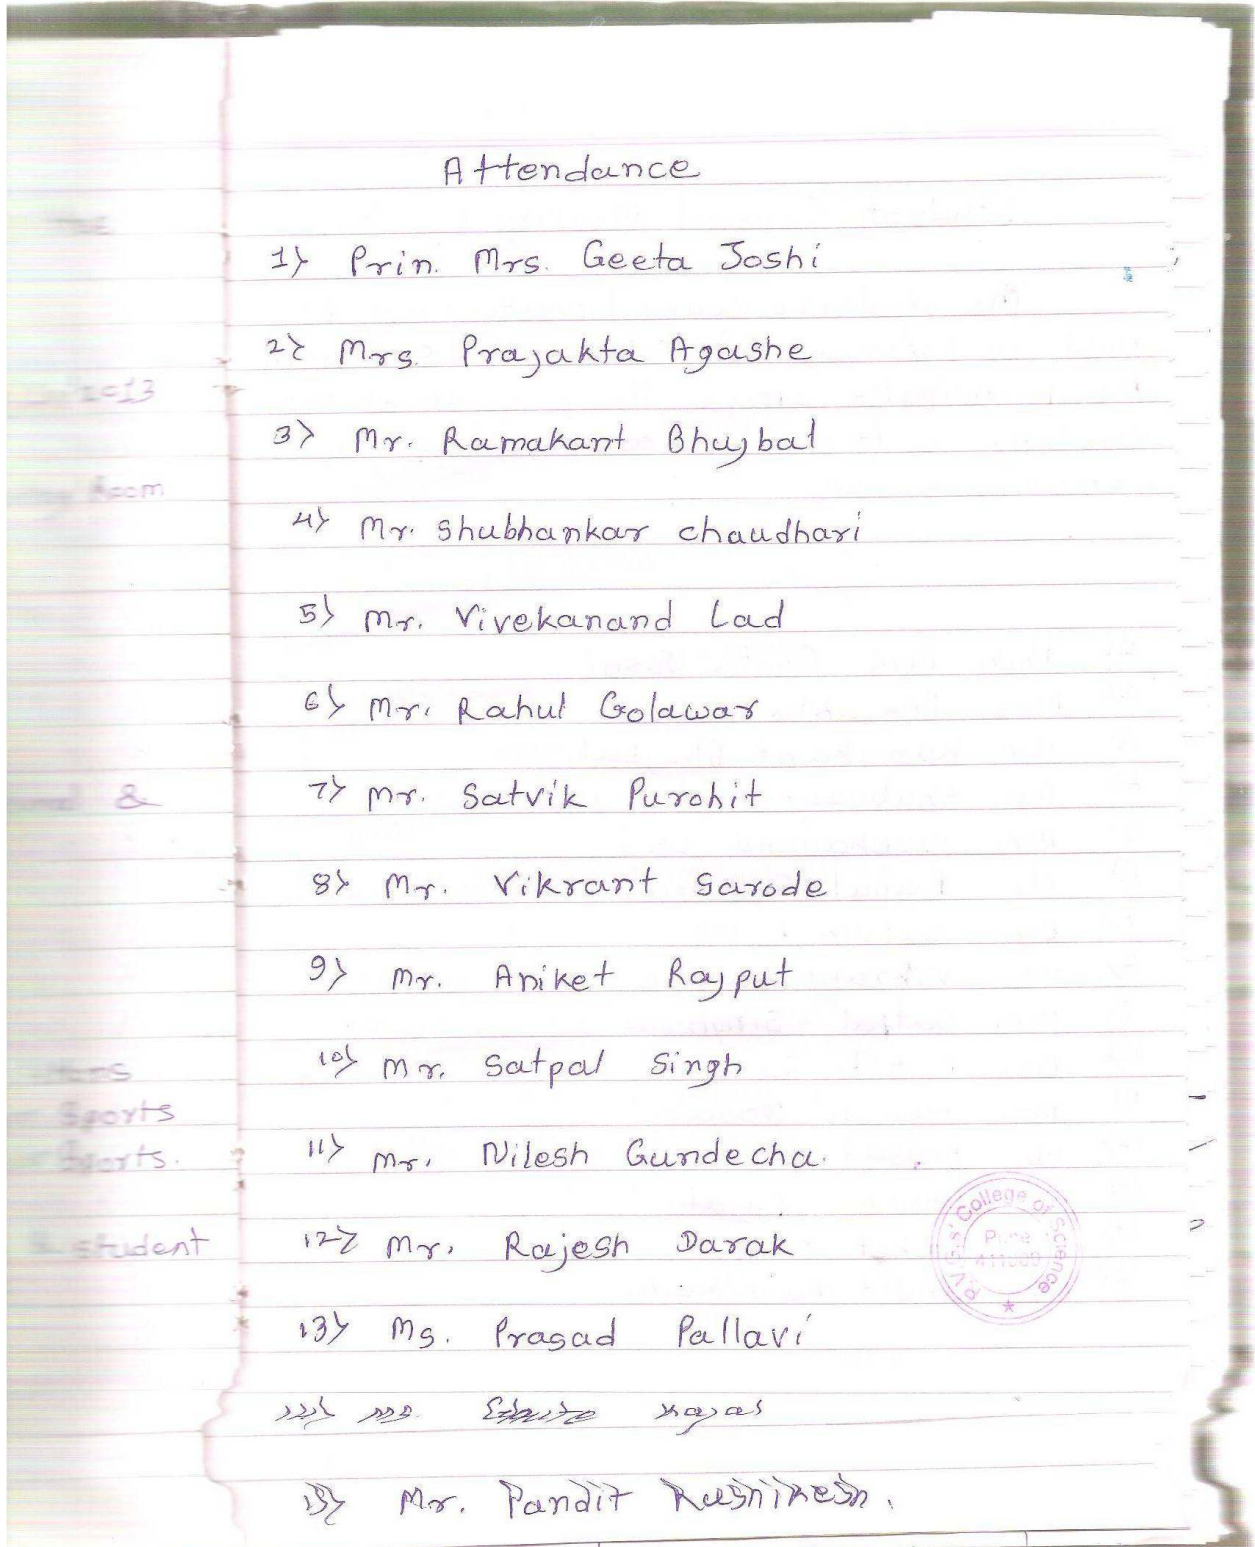 Attendance
1) Prin. Mrs. Geeta Joshi
2) Mrs. Prajakta Agashe
3) Mr. Ramakant Bhujbal
4) Mr. Shubhankar chaudhari
5) Mr. Vivekanand Lad
6) Mr. Rahul Golawar
7) Mr. Satvik Purohit
8) Mr. Vikrant Sarode
9) Mr. Aniket Rajput
10) Mr. Satpal Singh
11) Mr. Nilesh Gundecha.
12) Mr. Rajesh Darak
13) Ms. Prasad Pallavi
Kajal
15) Mr. Pandit Rushikesh.
2013
Room
&
Sports
Sports.
student
College of Science
Pune